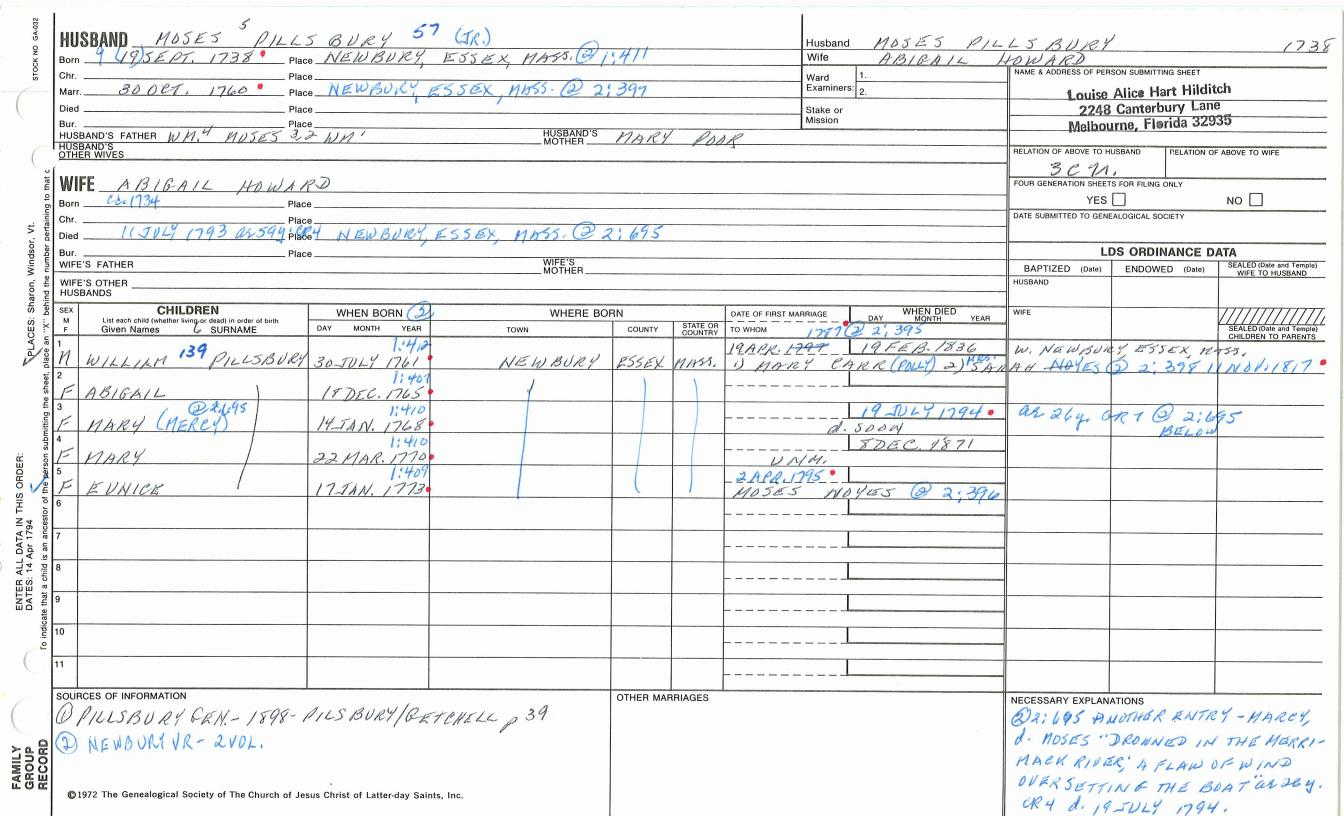 STOCK NO. GA-032
HUSBAND MOSES 5 PILLSBURY 57 (JR.)
Born 9 (19) SEPT. 1738 Place NEWBURY, ESSEX, MASS. @ 1:411
Chr. Place
Marr. 30 OCT. 1760 Place NEWBURY, ESSEX, MASS. @ 2:397
Died Place
Bur. Place
HUSBAND'S FATHER WM.4 MOSES 3,2 WM' HUSBAND'S MOTHER MARY POOR
HUSBAND'S OTHER WIVES
Husband MOSES PILLSBURY 1738
Wife ABIGAIL HOWARD
Ward Examiners: 1.
2.
Stake or Mission
NAME & ADDRESS OF PERSON SUBMITTING SHEET
Louise Alice Hart Hilditch
2248 Canterbury Lane
Melbourne, Florida 32935
RELATION OF ABOVE TO HUSBAND RELATION OF ABOVE TO WIFE
3 C
FOUR GENERATION SHEETS FOR FILING ONLY
YES NO
DATE SUBMITTED TO GENEALOGICAL SOCIETY
WIFE ABIGAIL HOWARD
Born ca. 1734 Place
Chr. Place
Died 11 JULY 1793 ae 59y. CR4 Place NEWBURY, ESSEX, MASS. @ 2:695
Bur. Place
WIFE'S FATHER WIFE'S MOTHER
WIFE'S OTHER HUSBANDS
LDS ORDINANCE DATA
BAPTIZED (Date) ENDOWED (Date) SEALED (Date and Temple) WIFE TO HUSBAND
HUSBAND
WIFE
SEALED (Date and Temple) CHILDREN TO PARENTS
SEX M F CHILDREN List each child (whether living or dead) in order of birth Given Names 6 SURNAME
WHEN BORN (2) DAY MONTH YEAR
WHERE BORN TOWN COUNTY STATE OR COUNTRY
DATE OF FIRST MARRIAGE TO WHOM
WHEN DIED DAY MONTH YEAR
1787 @ 2:395
1 M WILLIAM 139 PILLSBURY 1:412 30 JULY 1761 NEWBURY ESSEX MASS. 19 APR. 1797 19 FEB. 1836 W. NEWBURY ESSEX, MASS.
1) MARY CARR (POLLY) 2) MRS. SARAH NOYES @ 2:398 11 NOV. 1817
2 F ABIGAIL 1:407 18 DEC. 1765
3 F MARY (MERCY) @ 2:695 1:410 14 JAN. 1768 19 JULY 1794 ae 26y. CR1 @ 2:695 BELOW
d. SOON
4 F MARY 1:410 22 MAR. 1770 8 DEC. 1871
UNM.
5 F EUNICE 1:409 17 JAN. 1773 2 APR. 1795
MOSES NOYES @ 2:396
6
7
8
9
10
11
PLACES: Sharon, Windsor, Vt.
ENTER ALL DATA IN THIS ORDER:
DATES: 14 Apr 1794
To indicate that a child is an ancestor of the person submitting the sheet, place an "X" behind the number pertaining to that c
FAMILY GROUP RECORD
SOURCES OF INFORMATION
(1) PILLSBURY GEN. - 1898 - PILSBURY/GETCHELL p 39
(2) NEWBURY VR - 2 VOL.
OTHER MARRIAGES
NECESSARY EXPLANATIONS
@ 2:695 ANOTHER ENTRY - MARCY,
d. MOSES "DROWNED IN THE MERRI-
MACK RIVER, A FLAW OF WIND
OVERSETTING THE BOAT" ae 26y.
CR4 d. 19 JULY 1794.
©1972 The Genealogical Society of The Church of Jesus Christ of Latter-day Saints, Inc.